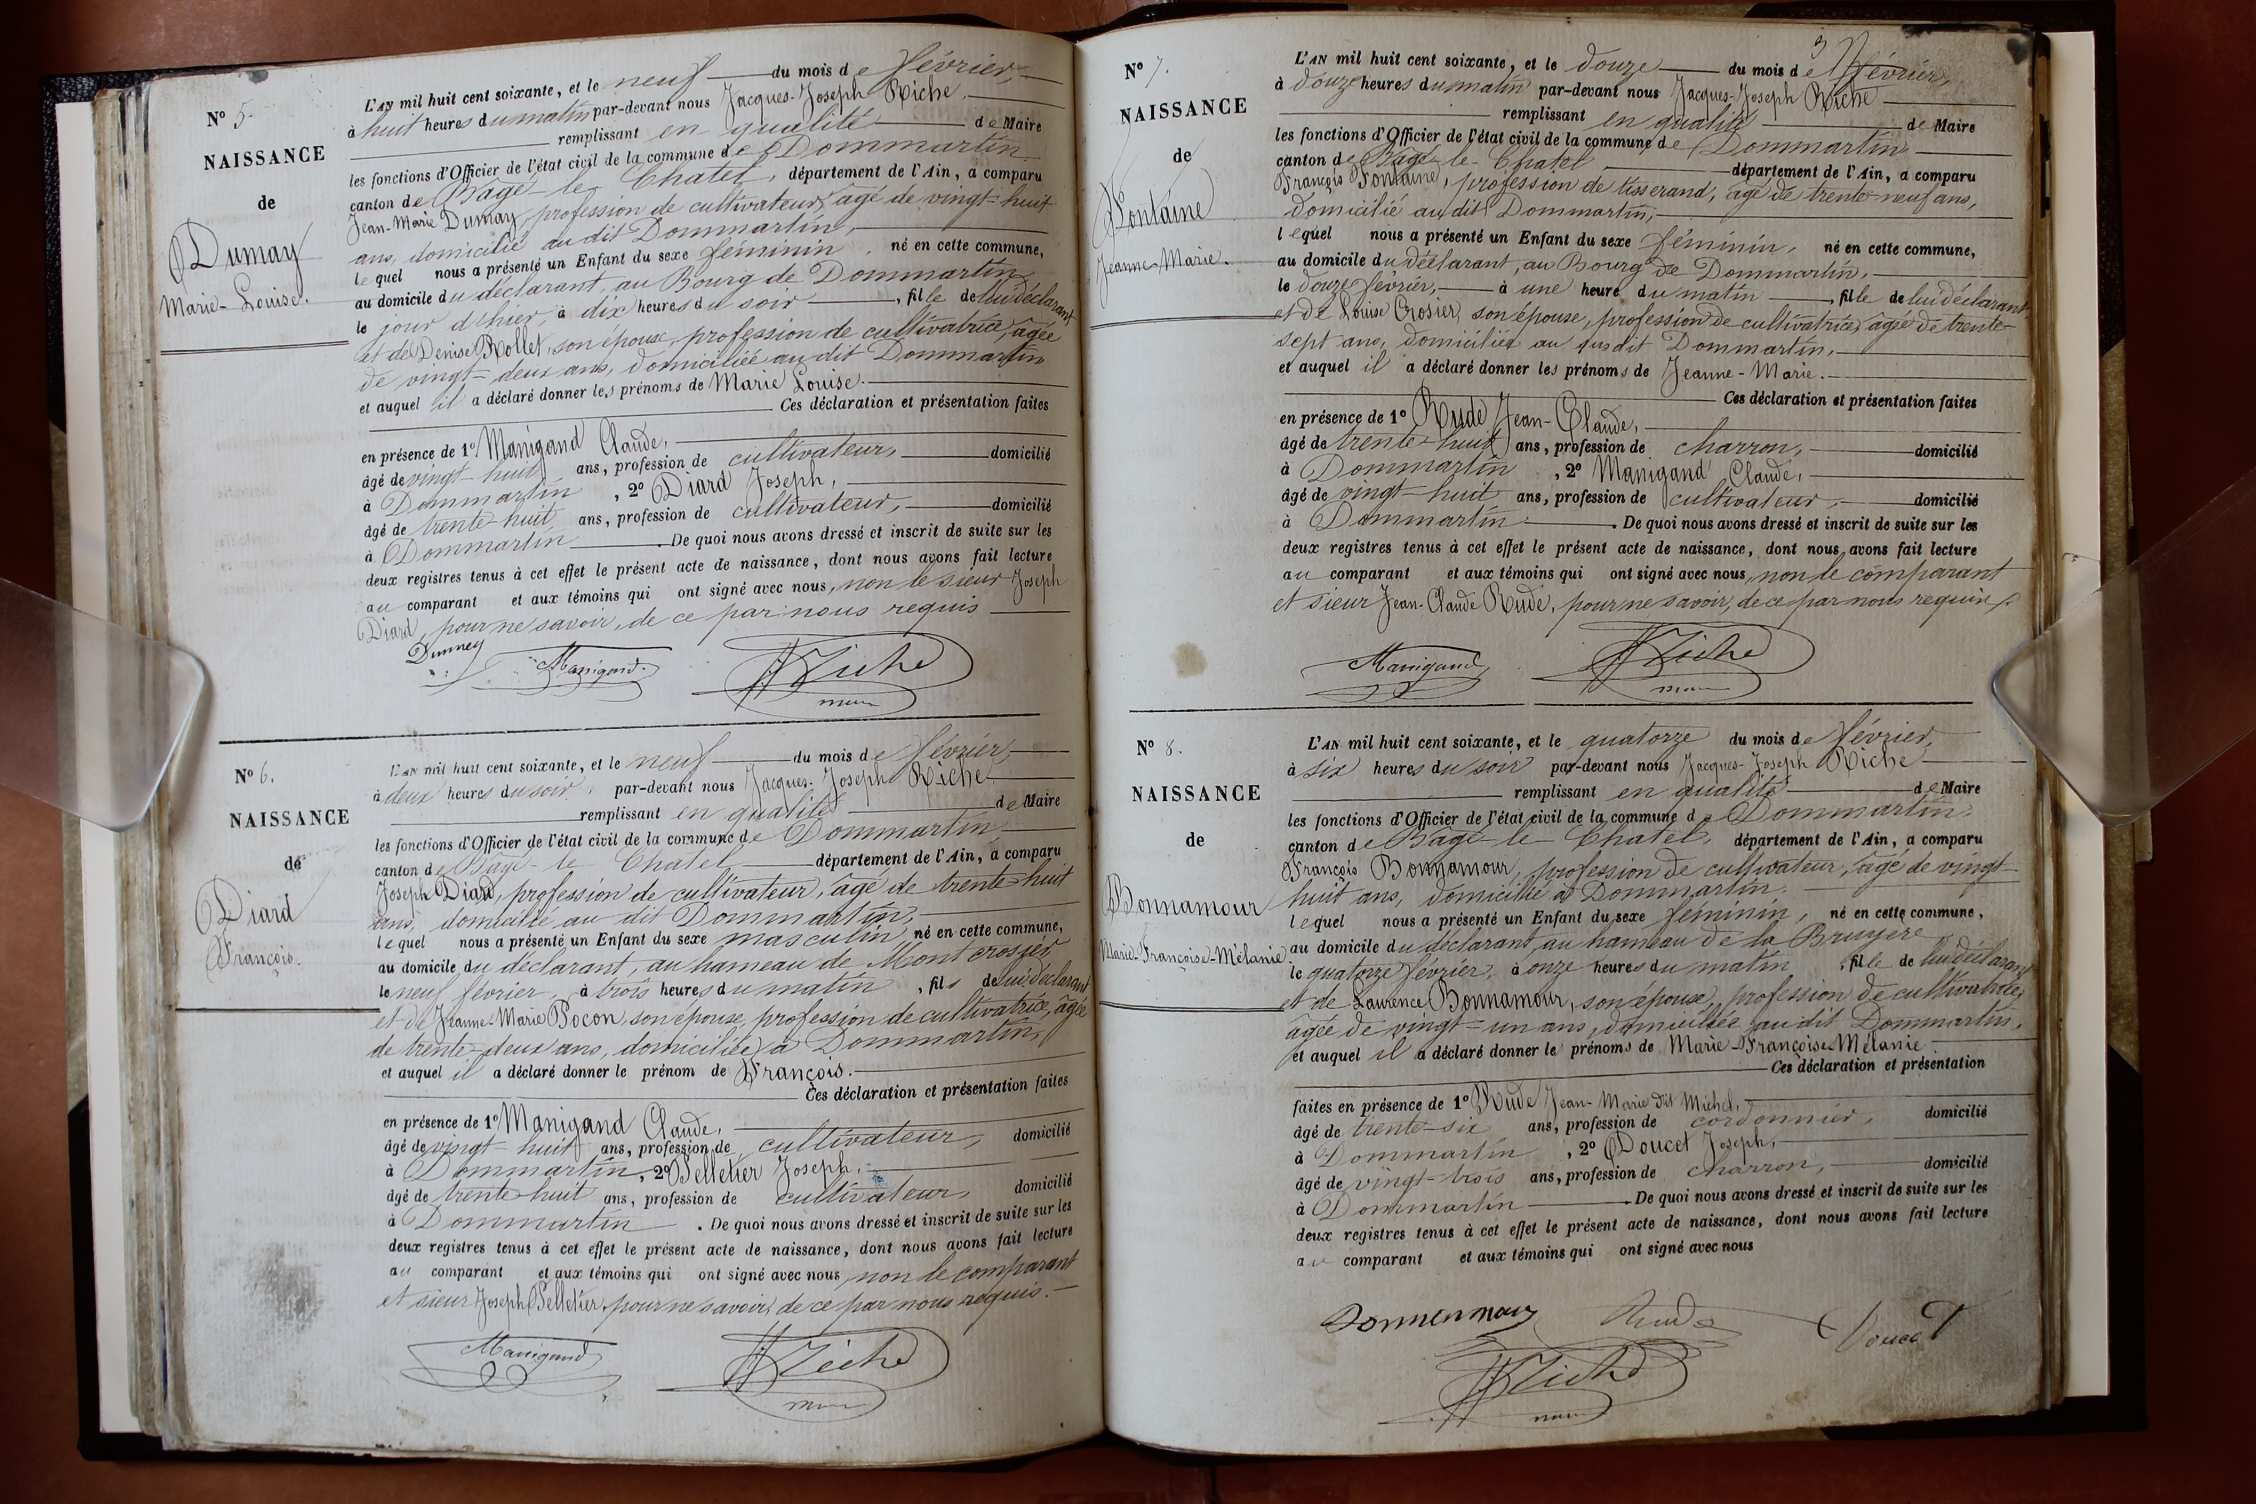 N° 5.
NAISSANCE
de
Dumay
Marie-Louise.
L'AN mil huit cent soixante, et le neuf du mois de février,
à huit heures du matin par-devant nous Jacques-Joseph Riche
remplissant en qualité de Maire
les fonctions d'Officier de l'état civil de la commune de Dommartin
canton de Bâgé-le-Chatel, département de l'Ain, a comparu
Jean-Marie Dumay, profession de cultivateur, âgé de vingt-huit
ans, domicilié au dit Dommartin,
lequel nous a présenté un Enfant du sexe féminin né en cette commune,
au domicile du déclarant, au Bourg de Dommartin
le jour d'hier, à dix heures du soir, fille de lui déclarant
et de Denise Rollet, son épouse, profession de cultivatrice, âgée
de vingt-deux ans, domiciliée au dit Dommartin
et auquel il a déclaré donner les prénoms de Marie Louise.
Ces déclaration et présentation faites
en présence de 1° Manigand Claude,
âgé de vingt-huit ans, profession de cultivateur, domicilié
à Dommartin, 2° Diard Joseph,
âgé de trente-huit ans, profession de cultivateur, domicilié
à Dommartin. De quoi nous avons dressé et inscrit de suite sur les
deux registres tenus à cet effet le présent acte de naissance, dont nous avons fait lecture
au comparant et aux témoins qui ont signé avec nous, non le sieur Joseph
Diard, pour ne savoir, de ce par nous requis
Dumey Manigand Riche
maire
N° 6.
NAISSANCE
de
Diard
François.
L'AN mil huit cent soixante, et le neuf du mois de février,
à deux heures du soir, par-devant nous Jacques-Joseph Riche
remplissant en qualité de Maire
les fonctions d'Officier de l'état civil de la commune de Dommartin
canton de Bâgé-le-Chatel département de l'Ain, a comparu
Joseph Diard, profession de cultivateur, âgé de trente-huit
ans, domicilié au dit Dommartin,
lequel nous a présenté un Enfant du sexe masculin né en cette commune,
au domicile du déclarant, au hameau de Mont crosier
le neuf février, à trois heures du matin, fils de lui déclarant
et de Jeanne-Marie Pocon, son épouse, profession de cultivatrice, âgée
de trente-deux ans, domiciliée à Dommartin,
et auquel il a déclaré donner le prénom de François.
Ces déclaration et présentation faites
en présence de 1° Manigand Claude,
âgé de vingt-huit ans, profession de cultivateur, domicilié
à Dommartin, 2° Pelletier Joseph,
âgé de trente-huit ans, profession de cultivateur, domicilié
à Dommartin. De quoi nous avons dressé et inscrit de suite sur les
deux registres tenus à cet effet le présent acte de naissance, dont nous avons fait lecture
au comparant et aux témoins qui ont signé avec nous non le comparant
et sieur Joseph Pelletier, pour ne savoir, de ce par nous requis.
Manigand Riche
maire
3
N° 7.
NAISSANCE
de
Fontaine
Jeanne-Marie.
L'AN mil huit cent soixante, et le douze du mois de février,
à douze heures du matin par-devant nous Jacques-Joseph Riche
remplissant en qualité de Maire
les fonctions d'Officier de l'état civil de la commune de Dommartin
canton de Bâgé-le-Chatel département de l'Ain, a comparu
François Fontaine, profession de tisserand, âgé de trente-neuf ans,
domicilié au dit Dommartin,
lequel nous a présenté un Enfant du sexe féminin, né en cette commune,
au domicile du déclarant, au Bourg de Dommartin,
le douze février, à une heure du matin, fille de lui déclarant
et de Louise Crosier, son épouse, profession de cultivatrice, âgée de trente-
sept ans, domiciliée au susdit Dommartin,
et auquel il a déclaré donner les prénoms de Jeanne-Marie.
Ces déclaration et présentation faites
en présence de 1° Rude Jean-Claude,
âgé de trente-huit ans, profession de charron, domicilié
à Dommartin, 2° Manigand Claude,
âgé de vingt-huit ans, profession de cultivateur, domicilié
à Dommartin. De quoi nous avons dressé et inscrit de suite sur les
deux registres tenus à cet effet le présent acte de naissance, dont nous avons fait lecture
au comparant et aux témoins qui ont signé avec nous, non le comparant
et sieur Jean-Claude Rude, pour ne savoir, de ce par nous requis.
Manigand Riche
maire
N° 8.
NAISSANCE
de
Bonnamour
Marie-Françoise-Mélanie
L'AN mil huit cent soixante, et le quatorze du mois de février,
à six heures du soir par-devant nous Jacques-Joseph Riche
remplissant en qualité de Maire
les fonctions d'Officier de l'état civil de la commune de Dommartin,
canton de Bâgé-le-Chatel, département de l'Ain, a comparu
François Bonnamour, profession de cultivateur, âgé de vingt-
huit ans, domicilié à Dommartin.
lequel nous a présenté un Enfant du sexe féminin, né en cette commune,
au domicile du déclarant, au hameau de la Bruyère
le quatorze février, à onze heures du matin, fille de lui déclarant
et de Laurence Bonnamour, son épouse, profession de cultivatrice,
âgée de vingt-un ans, domiciliée au dit Dommartin,
et auquel il a déclaré donner le prénoms de Marie-Françoise Mélanie
Ces déclaration et présentation
faites en présence de 1° Rude Jean-Marie dit Michel,
âgé de trente-six ans, profession de cordonnier, domicilié
à Dommartin, 2° Doucet Joseph,
âgé de vingt-trois ans, profession de charron, domicilié
à Dommartin. De quoi nous avons dressé et inscrit de suite sur les
deux registres tenus à cet effet le présent acte de naissance, dont nous avons fait lecture
au comparant et aux témoins qui ont signé avec nous
Bonnamour Rude Doucet
Riche
maire